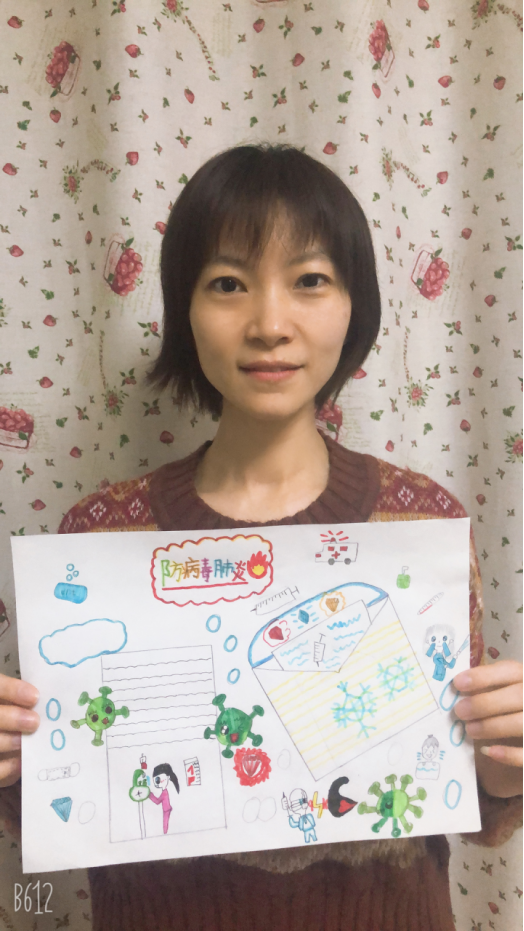 防病毒肺炎
B612